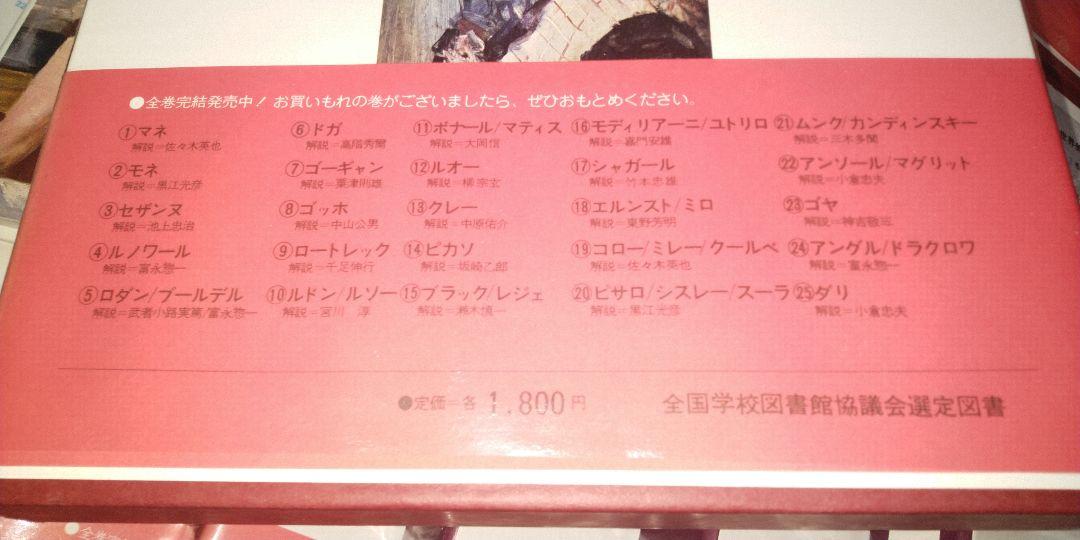 ●全巻完結発売中！お買いもれの巻がございましたら、ぜひおもとめください。
①マネ
解説＝佐々木英也
②モネ
解説＝黒江光彦
③セザンヌ
解説＝池上忠治
④ルノワール
解説＝富永惣一
⑤ロダン/ブールデル
解説＝武者小路実篤/富永惣一
⑥ドガ
解説＝高階秀爾
⑦ゴーギャン
解説＝粟津則雄
⑧ゴッホ
解説＝中山公男
⑨ロートレック
解説＝千足伸行
⑩ルドン/ルソー
解説＝宮川 淳
⑪ボナール/マティス
解説＝大岡信
⑫ルオー
解説＝柳宗玄
⑬クレー
解説＝中原佑介
⑭ピカソ
解説＝坂崎乙郎
⑮ブラック/レジェ
解説＝瀬木慎一
⑯モディリアーニ/ユトリロ
解説＝嘉門安雄
⑰シャガール
解説＝竹本忠雄
⑱エルンスト/ミロ
解説＝東野芳明
⑲コロー/ミレー/クールベ
解説＝佐々木英也
⑳ピサロ/シスレー/スーラ
解説＝黒江光彦
㉑ムンク/カンディンスキー
解説＝三木多聞
㉒アンソール/マグリット
解説＝小倉忠夫
㉓ゴヤ
解説＝神吉敬三
㉔アングル/ドラクロワ
解説＝富永惣一
㉕ダリ
解説＝小倉忠夫
●定価＝各 1,800円
全国学校図書館協議会選定図書
●全巻完